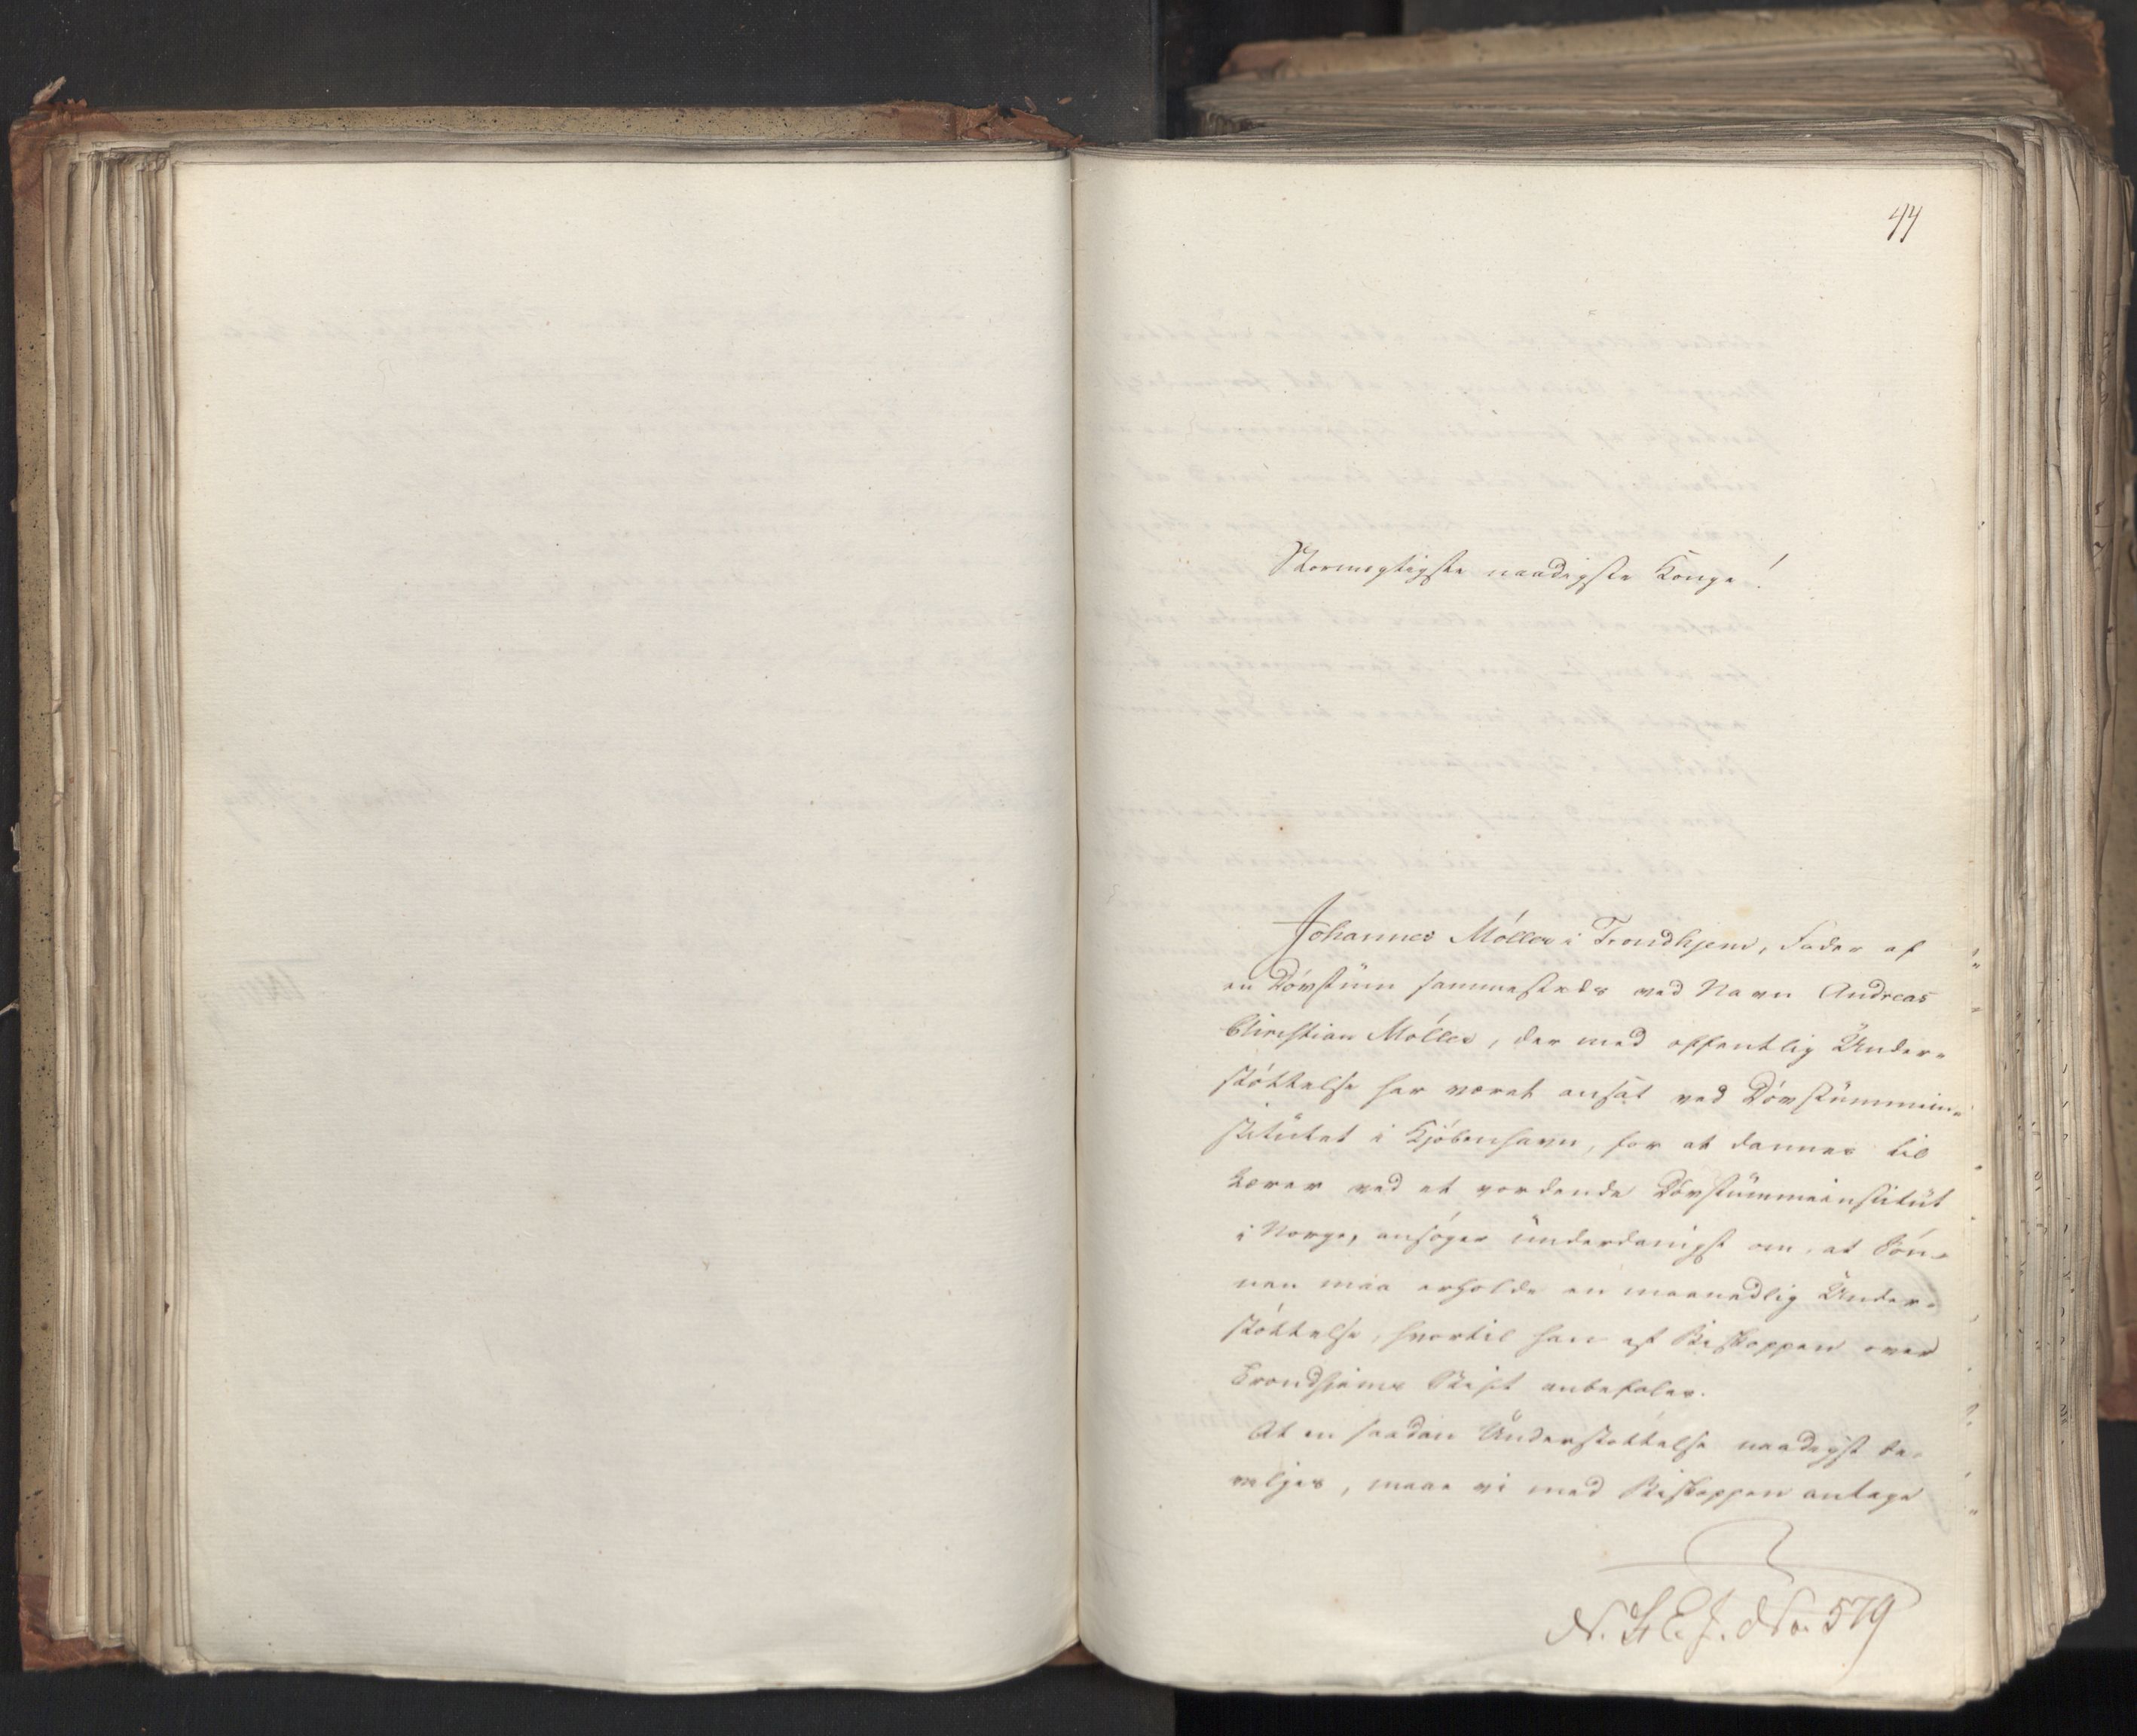 44
Stormægtigste naadigste Konge!
Johannes Møller i Trondhjem, Fader af
en Døvstum sammesteds ved Navn Andreas
Christian Møller, der med offentlig Under-
støttelse har været ansat ved Døvstummein-
stitutet i Kjøbenhavn, for at dannes til
Lærer ved et vordende Døvstummeinstitut
i Norge, ansøger underdanigst om, at Søn-
nen maa erholde en maanedlig Under-
støttelse, hvortil han af Biskoppen over
Trondhjems Stift anbefales.
At en saadan Understøttelse naadigst be-
vilges, maae vi med Biskoppen antage
No. 579